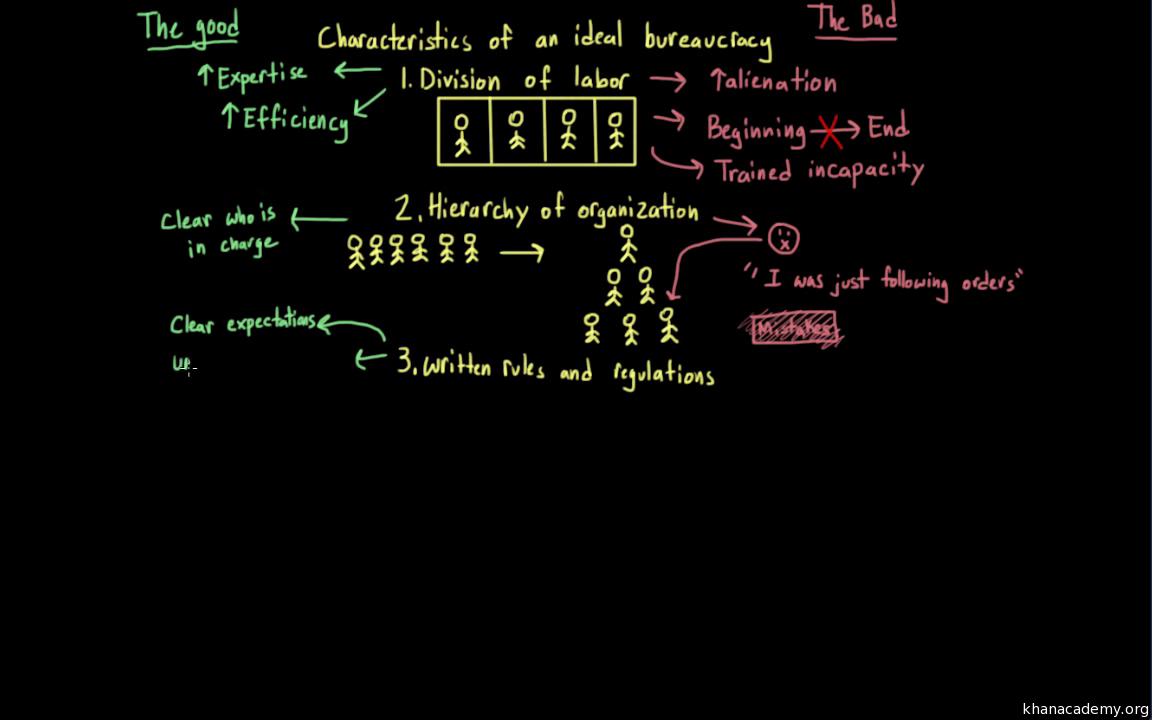 The good
The Bad
Characteristics of an ideal bureaucracy
↑Expertise
1. Division of labor
↑alienation
↑Efficiency
Beginning → End
Trained incapacity
Clear who is
in charge
2. Hierarchy of organization
"I was just following orders"
Mistakes
Clear expectations
3. Written rules and regulations
khanacademy.org